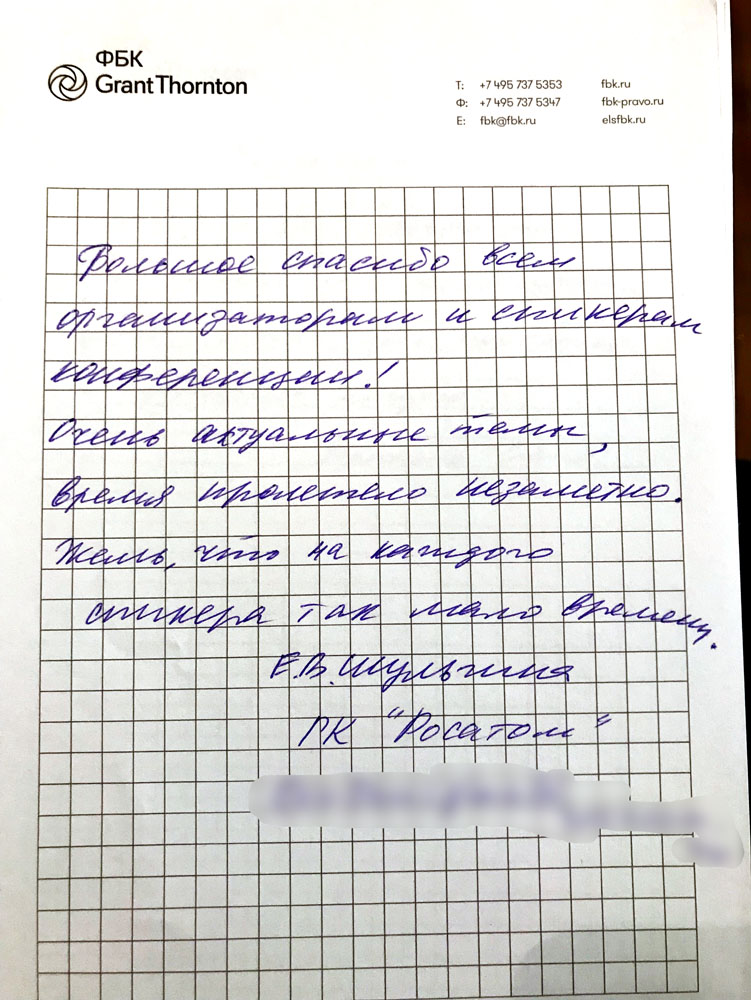 ФБК
Grant Thornton
Т: +7 495 737 5353 fbk.ru
Ф: +7 495 737 5347 fbk-pravo.ru
E: fbk@fbk.ru elsfbk.ru
Большое спасибо всем
организаторам и спикерам
конференции!
Очень актуальные темы,
время пролетело незаметно.
Жаль, что на каждого
спикера так мало времени.
Е.В. Шульгина
ГК "Росатом"